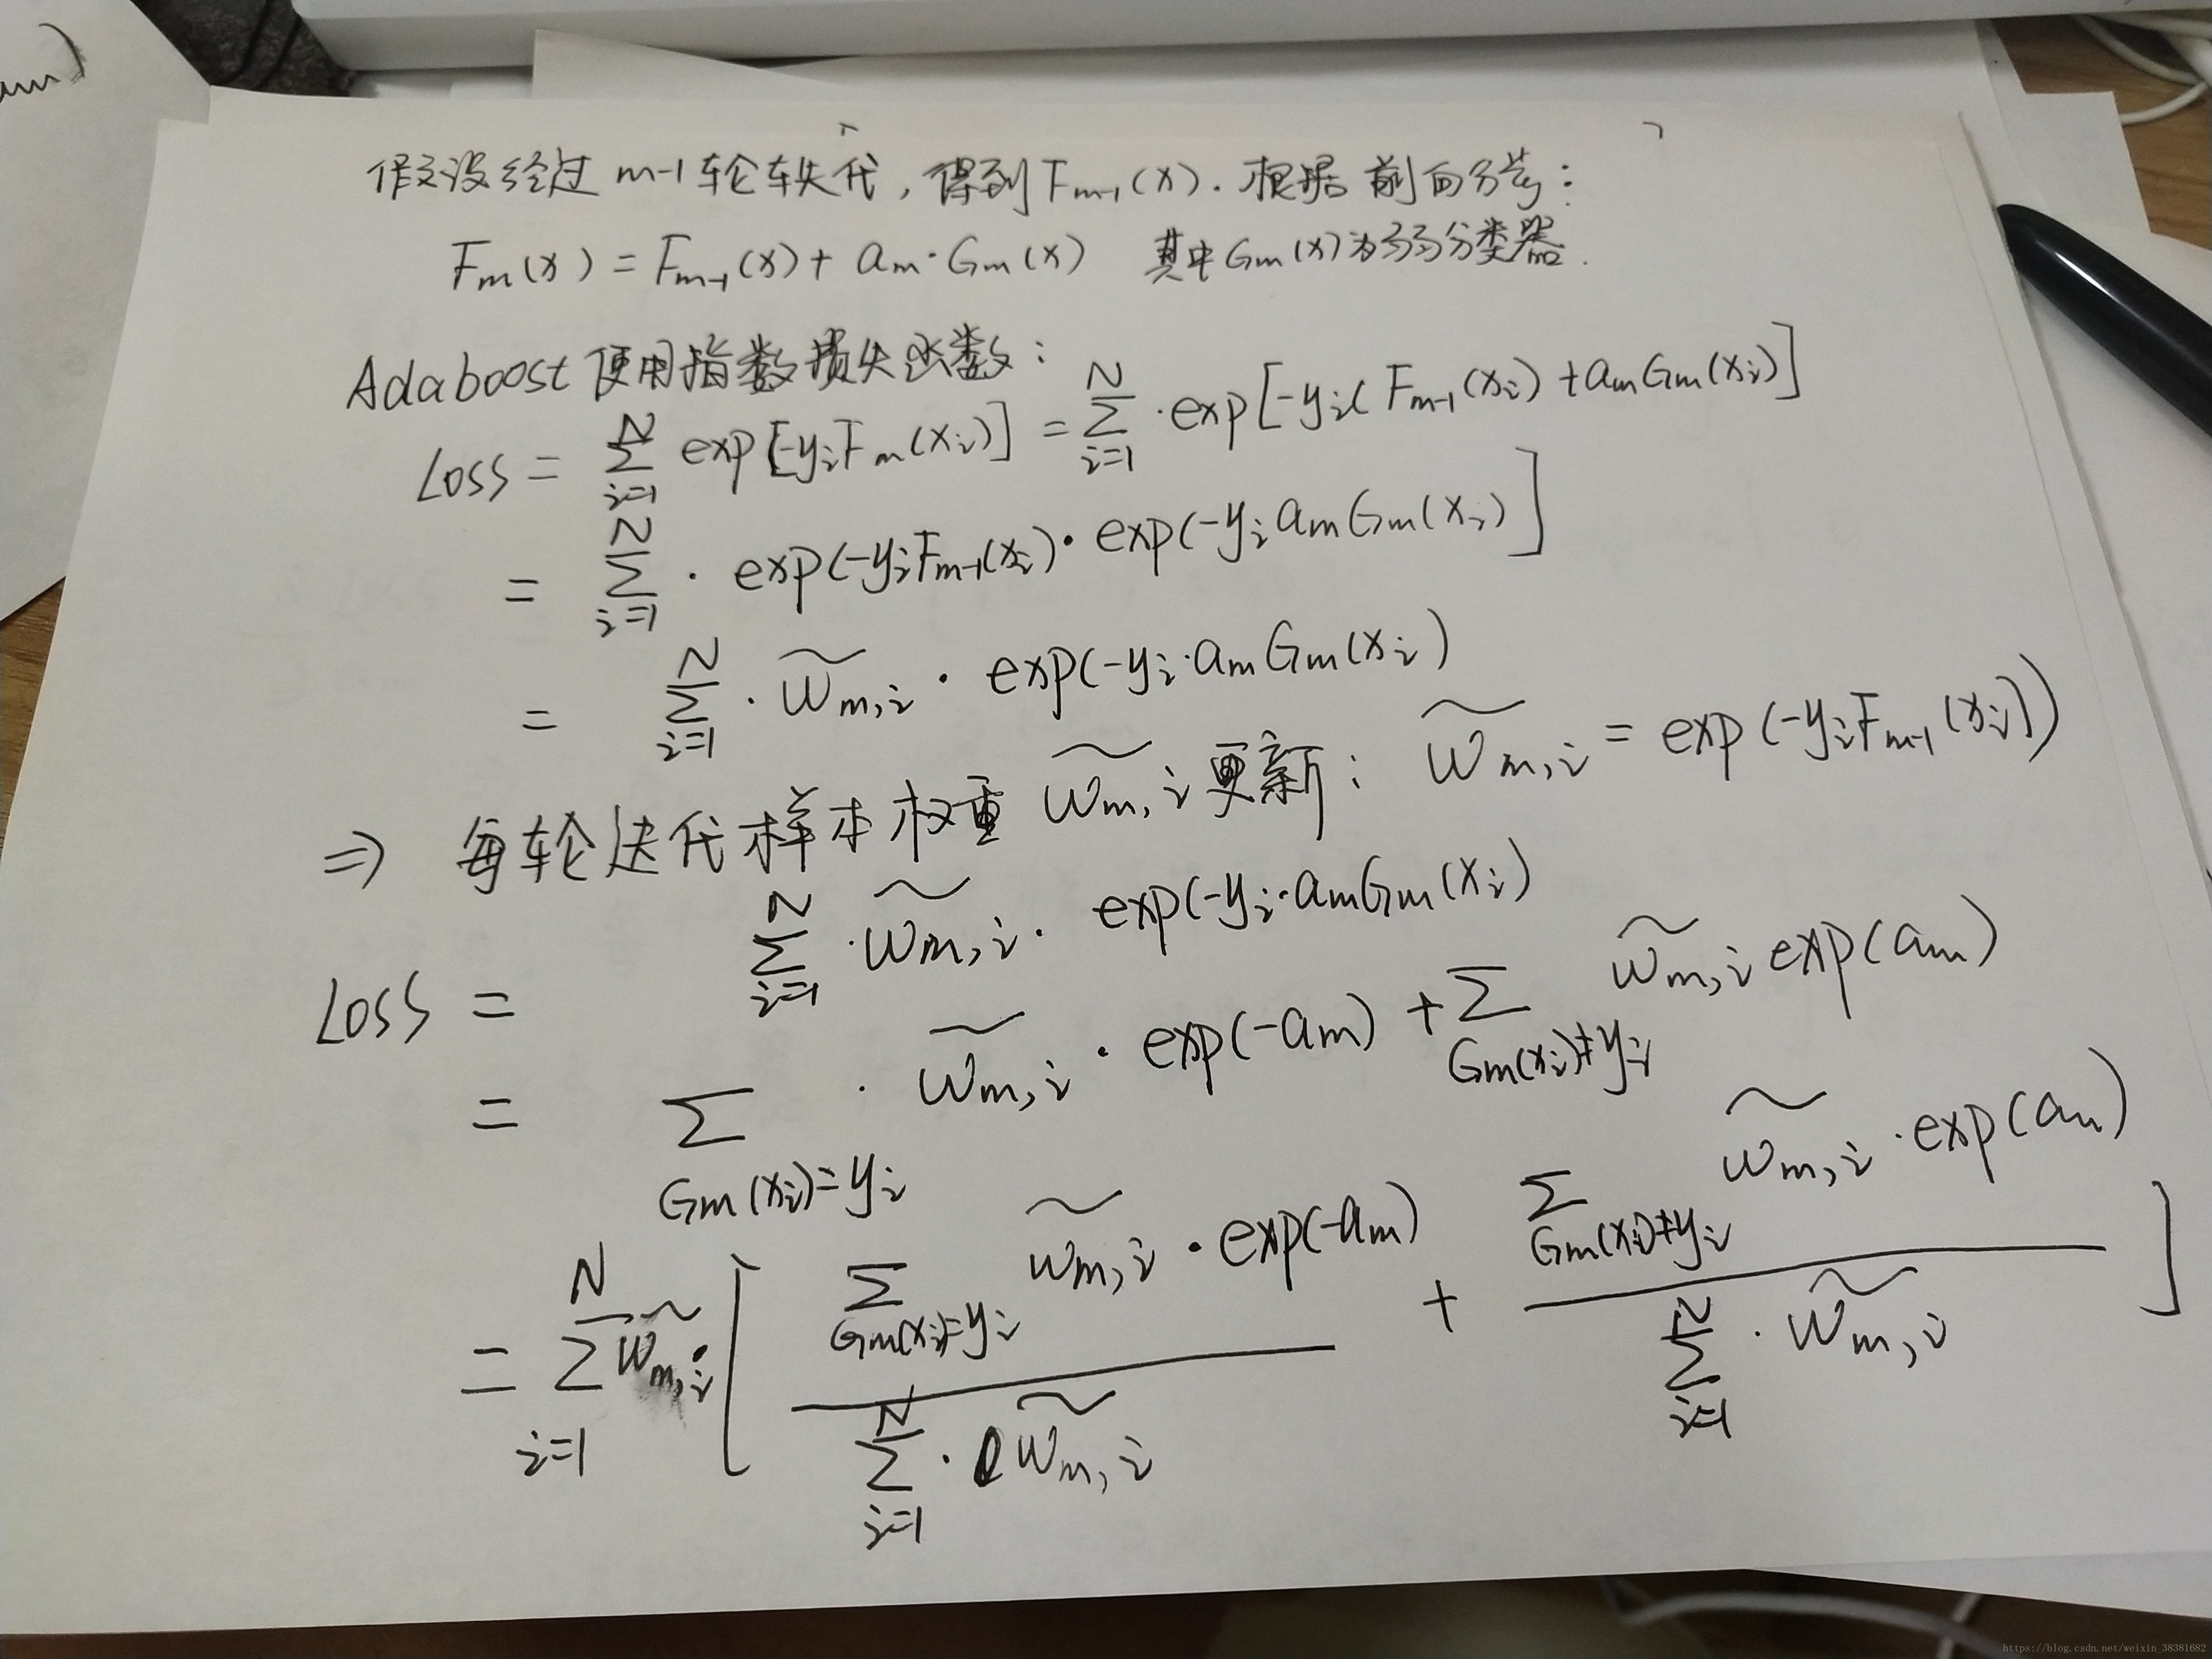 am)
假设经过 m-1 轮轶代，得到 Fm-1(x). 根据 前向分步：
Fm(x) = Fm-1(x) + am·Gm(x) 其中Gm(x)为弱分类器.
Adaboost 使用指数损失函数：
Loss = ∑_{i=1}^{N} exp[-yiFm(xi)] = ∑_{i=1}^{N} ·exp[-yi( Fm-1(xi) + amGm(xi)]
= ∑_{i=1}^{N} · exp(-yiFm-1(xi)· exp(-yi amGm(xi)]
= ∑_{i=1}^{N} · w̃m,i · exp(-yi·amGm(xi)
⇒ 每轮迭代样本权重 w̃m,i更新： w̃m,i = exp(-yiFm-1(xi))
Loss = ∑_{i=1}^{N} ·w̃m,i · exp(-yi·amGm(xi)
= ∑_{Gm(xi)=yi} · w̃m,i · exp(-am) + ∑_{Gm(xi)≠yi} w̃m,i exp(am)
= ∑_{i=1}^{N} w̃m,i [ (∑_{Gm(xi)=yi} w̃m,i · exp(-am)) / (∑_{i=1}^{N} · w̃m,i) + (∑_{Gm(xi)≠yi} w̃m,i ·exp(am)) / (∑_{i=1}^{N} · w̃m,i) ]
https://blog.csdn.net/weixin_38381682